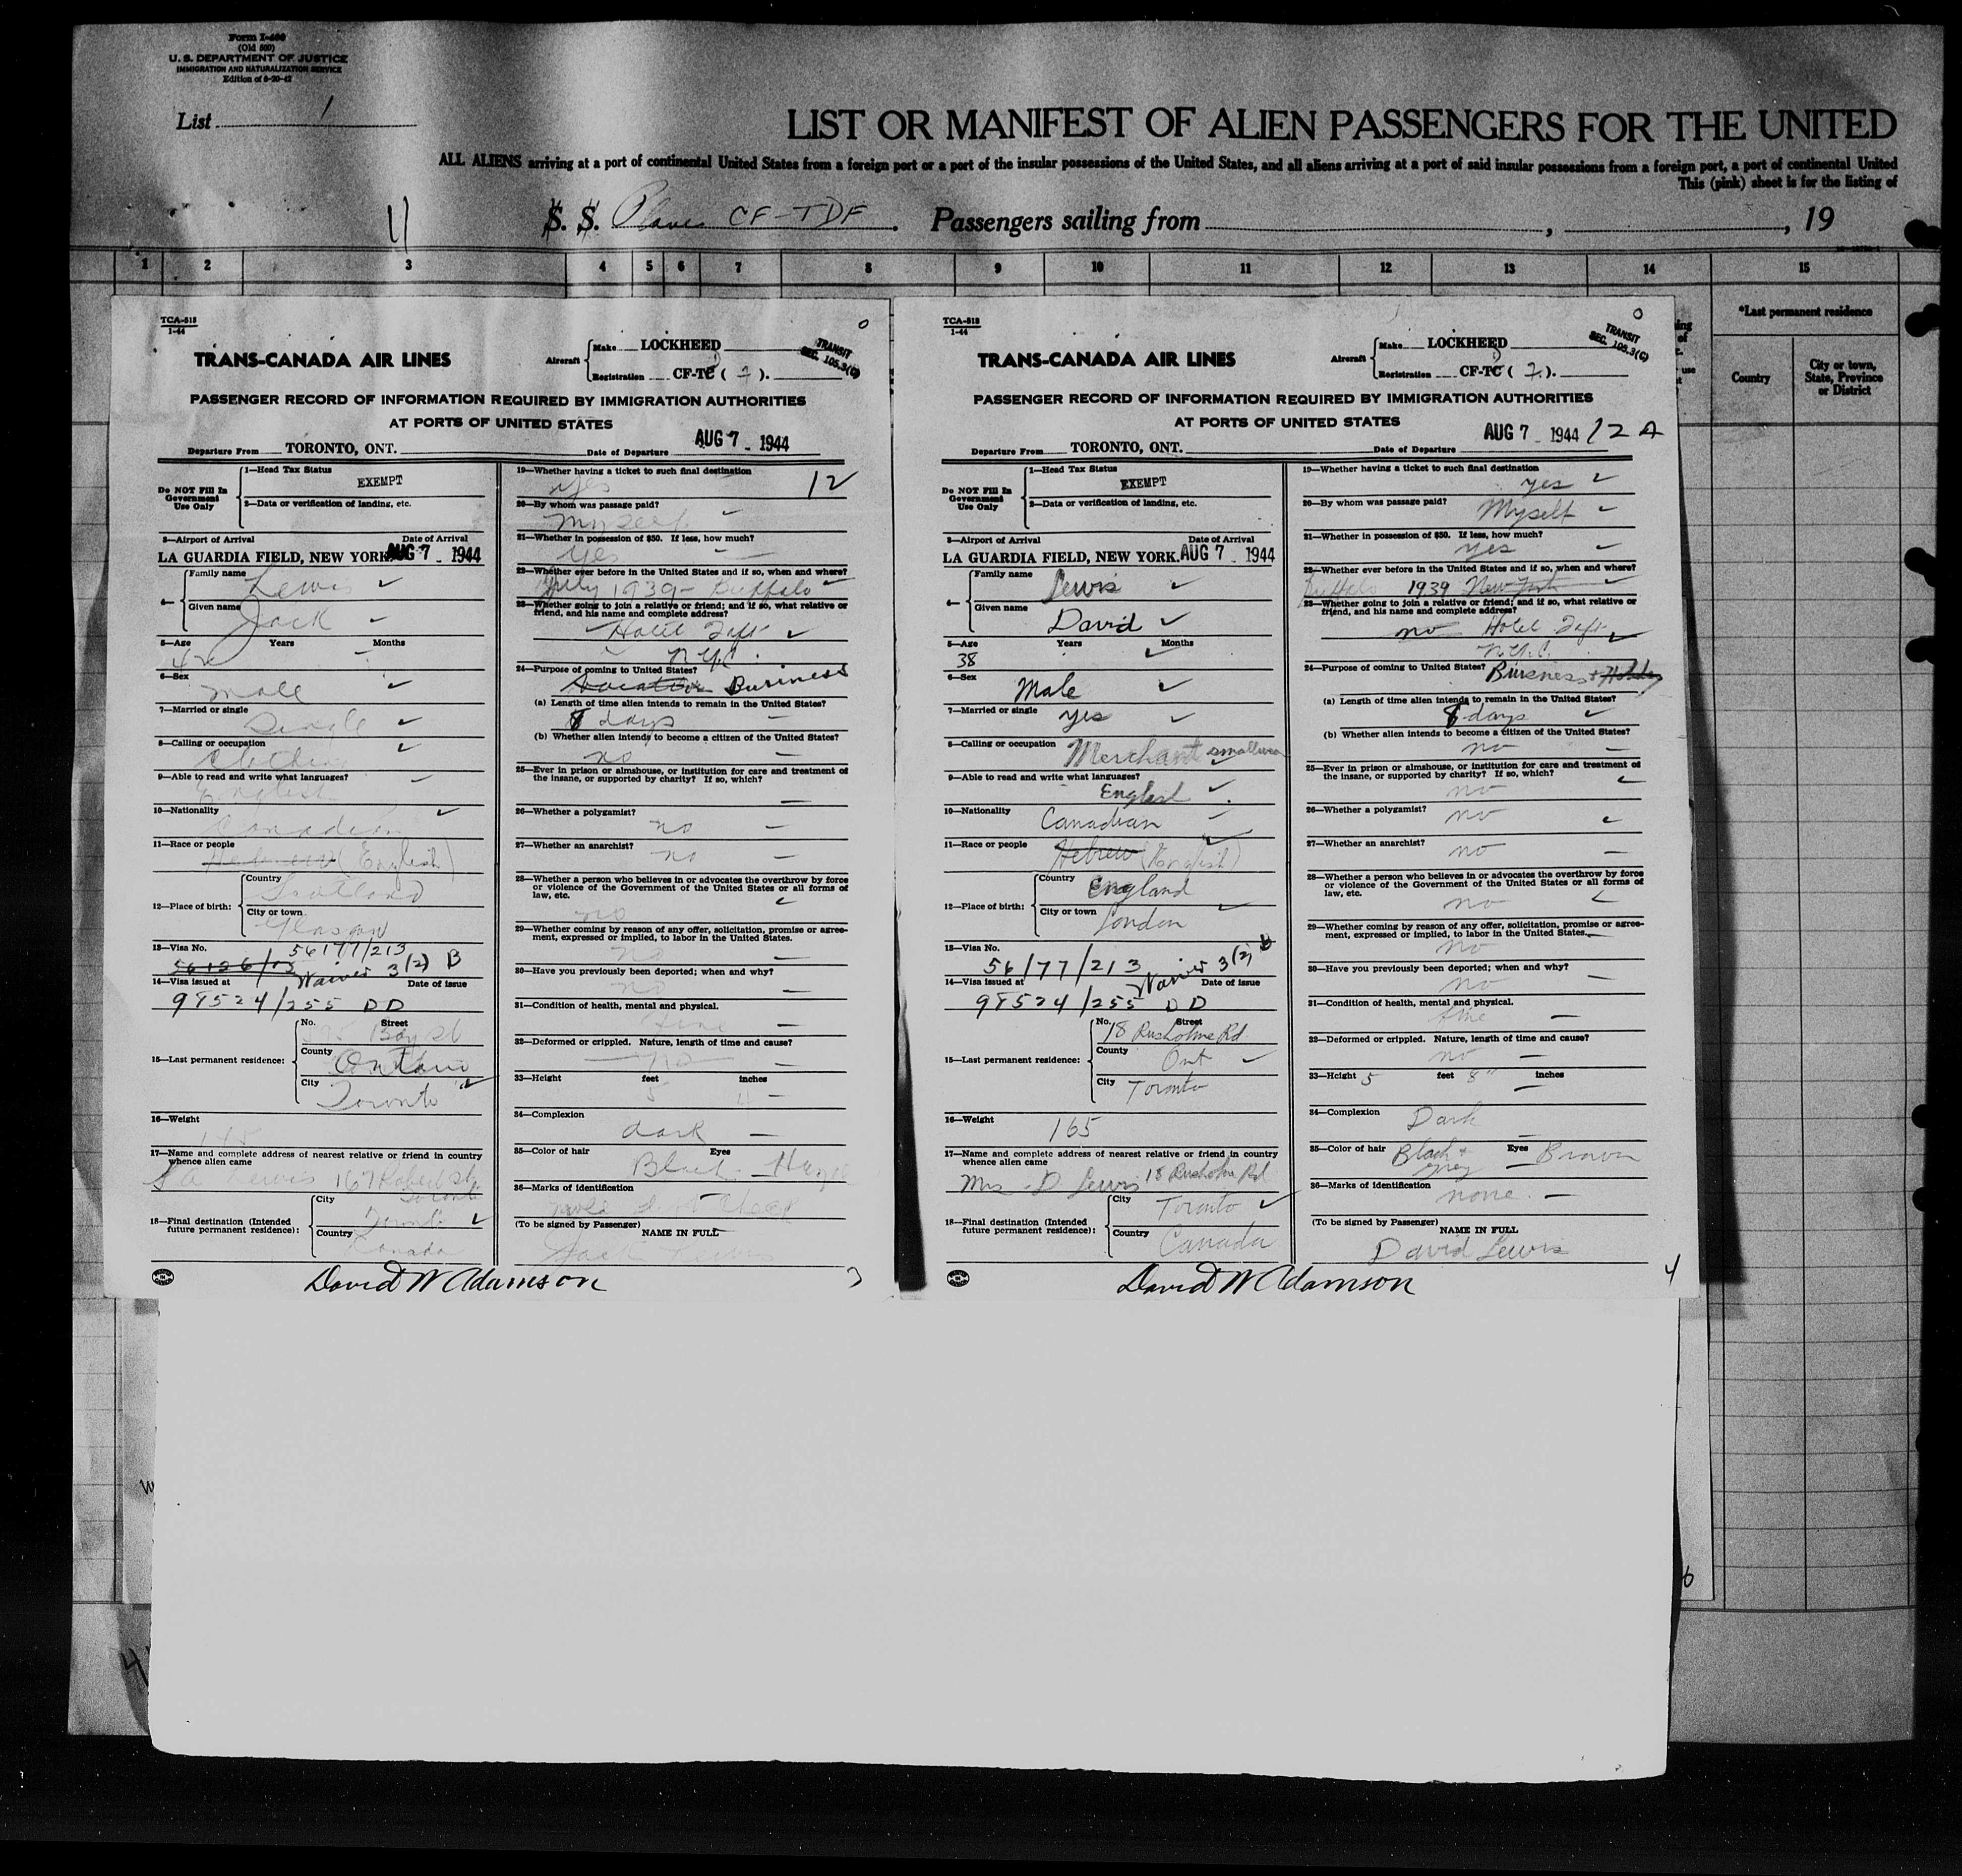 Form I-400
(Old 500)
U. S. DEPARTMENT OF JUSTICE
IMMIGRATION AND NATURALIZATION SERVICE
Edition of 6-20-42
List 1
LIST OR MANIFEST OF ALIEN PASSENGERS FOR THE UNITED
ALL ALIENS arriving at a port of continental United States from a foreign port or a port of the insular possessions of the United States, and all aliens arriving at a port of said insular possessions from a foreign port, a port of continental United
This (pink) sheet is for the listing of
S. S. CF-TDF. Passengers sailing from , , 19
1 2 3 4 5 6 7 8 9 10 11 12 13 14 15
*Last permanent residence
Country
City or town, State, Province or District
TCA-518
1-44
TRANS-CANADA AIR LINES
Aircraft
Make LOCKHEED
Registration CF-TC ( 2 ).
TRANSIT
SEC. 105.3(G)
PASSENGER RECORD OF INFORMATION REQUIRED BY IMMIGRATION AUTHORITIES
AT PORTS OF UNITED STATES
Departure From TORONTO, ONT. Date of Departure AUG 7 - 1944
Do NOT Fill In Government Use Only
1—Head Tax Status
EXEMPT
2—Data or verification of landing, etc.
3—Airport of Arrival Date of Arrival
LA GUARDIA FIELD, NEW YORK. AUG 7 - 1944
4— Family name Lewis
Given name Jack
5—Age Years Months
42
6—Sex
Male
7—Married or single
Single
8—Calling or occupation
9—Able to read and write what languages?
English
10—Nationality
Canadian
11—Race or people
Hebrew (English)
12—Place of birth:
Country
Scotland
City or town
Glasgow
13—Visa No.
56177/213
Waiver 3(2) B
14—Visa issued at Date of issue
98524/255 DD
15—Last permanent residence:
No. Street
Bay St
County
Ontario
City
Toronto
16—Weight
145
17—Name and complete address of nearest relative or friend in country
whence alien came
Lewis 167 Robert St.
Toronto
18—Final destination (Intended
future permanent residence):
City
Toronto
Country
Canada
19—Whether having a ticket to such final destination
Yes
12
20—By whom was passage paid?
Myself
21—Whether in possession of $50. If less, how much?
Yes
22—Whether ever before in the United States and if so, when and where?
July 1939 - Buffalo
23—Whether going to join a relative or friend; and if so, what relative or
friend, and his name and complete address?
Hotel Taft
N.Y.C.
24—Purpose of coming to United States?
Vacation Business
(a) Length of time alien intends to remain in the United States?
8 days
(b) Whether alien intends to become a citizen of the United States?
no
25—Ever in prison or almshouse, or institution for care and treatment of
the insane, or supported by charity? If so, which?
26—Whether a polygamist?
no
27—Whether an anarchist?
no
28—Whether a person who believes in or advocates the overthrow by force
or violence of the Government of the United States or all forms of
law, etc.
no
29—Whether coming by reason of any offer, solicitation, promise or agree-
ment, expressed or implied, to labor in the United States.
no
30—Have you previously been deported; when and why?
no
31—Condition of health, mental and physical.
fine
32—Deformed or crippled. Nature, length of time and cause?
no
33—Height feet inches
5
34—Complexion
dark
35—Color of hair Eyes
Black Hazel
36—Marks of identification
(To be signed by Passenger) NAME IN FULL
Jack Lewis
David W Adamson
3
TCA-518
1-44
TRANS-CANADA AIR LINES
Aircraft
Make LOCKHEED
Registration CF-TC ( 2 ).
TRANSIT
SEC. 105.3(G)
PASSENGER RECORD OF INFORMATION REQUIRED BY IMMIGRATION AUTHORITIES
AT PORTS OF UNITED STATES
Departure From TORONTO, ONT. Date of Departure AUG 7 - 1944 12 A
Do NOT Fill In Government Use Only
1—Head Tax Status
EXEMPT
2—Data or verification of landing, etc.
3—Airport of Arrival Date of Arrival
LA GUARDIA FIELD, NEW YORK. AUG 7 - 1944
4— Family name Lewis
Given name David
5—Age Years Months
38
6—Sex
Male
7—Married or single
yes
8—Calling or occupation
Merchant
9—Able to read and write what languages?
English
10—Nationality
Canadian
11—Race or people
Hebrew (English)
12—Place of birth:
Country
England
City or town
London
13—Visa No.
56/77/213
Waiver 3(2) B
14—Visa issued at Date of issue
98524/255 DD
15—Last permanent residence:
No. Street
18 Rusholme Rd
County
Ont
City
Toronto
16—Weight
165
17—Name and complete address of nearest relative or friend in country
whence alien came
Mrs D Lewis 18 Rusholme Rd
18—Final destination (Intended
future permanent residence):
City
Toronto
Country
Canada
19—Whether having a ticket to such final destination
yes
20—By whom was passage paid?
Myself
21—Whether in possession of $50. If less, how much?
yes
22—Whether ever before in the United States and if so, when and where?
Buffalo 1939 New York
23—Whether going to join a relative or friend; and if so, what relative or
friend, and his name and complete address?
no Hotel Taft
N.Y.C.
24—Purpose of coming to United States?
Business + Holiday
(a) Length of time alien intends to remain in the United States?
8 days
(b) Whether alien intends to become a citizen of the United States?
no
25—Ever in prison or almshouse, or institution for care and treatment of
the insane, or supported by charity? If so, which?
no
26—Whether a polygamist?
no
27—Whether an anarchist?
no
28—Whether a person who believes in or advocates the overthrow by force
or violence of the Government of the United States or all forms of
law, etc.
no
29—Whether coming by reason of any offer, solicitation, promise or agree-
ment, expressed or implied, to labor in the United States.
no
30—Have you previously been deported; when and why?
no
31—Condition of health, mental and physical.
fine
32—Deformed or crippled. Nature, length of time and cause?
no
33—Height 5 feet 8" inches
34—Complexion
Dark
35—Color of hair Eyes
Black + grey Brown
36—Marks of identification
none.
(To be signed by Passenger) NAME IN FULL
David Lewis
David W Adamson
4